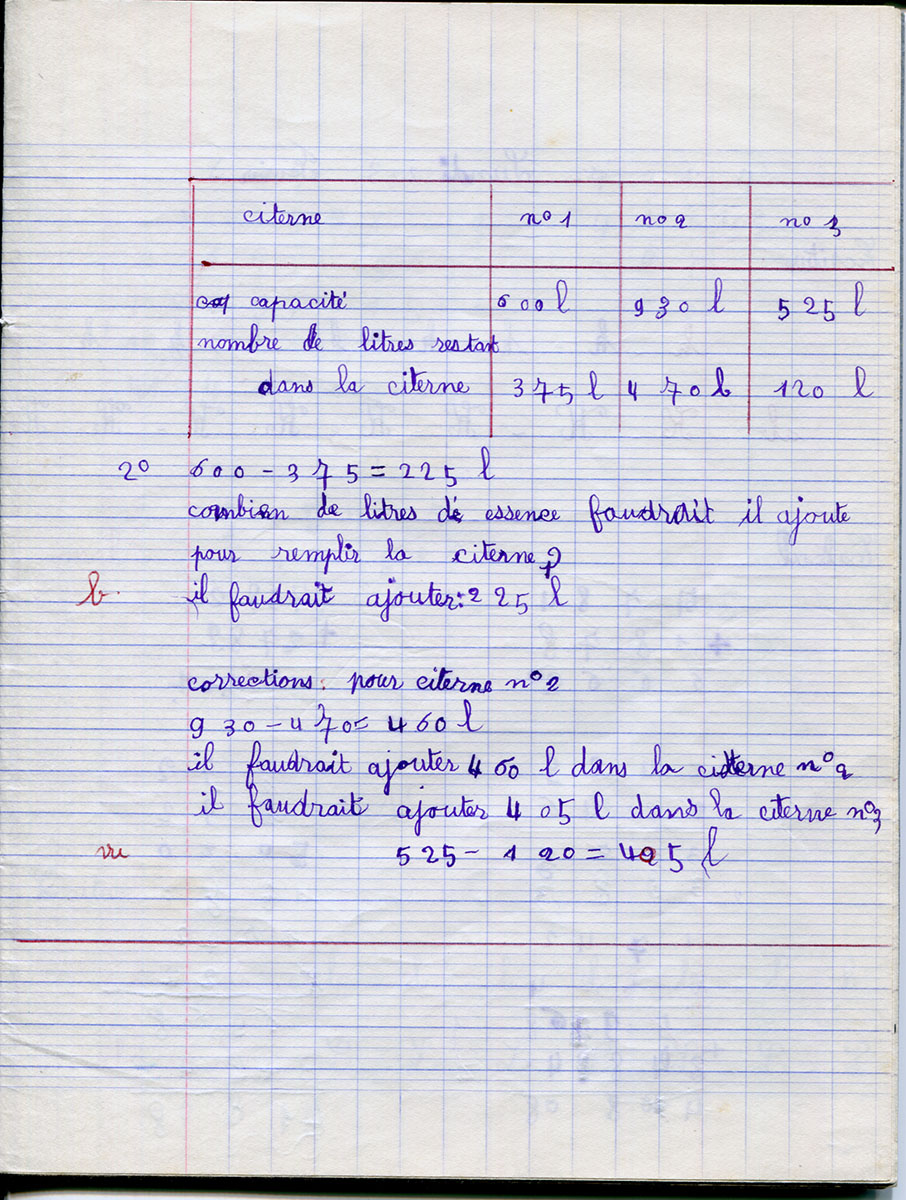 citerne n° 1 n° 2 n° 3
capacité 600 l 930 l 525 l
nombre de litres restant
dans la citerne 375 l 470 l 120 l
2° 600 - 375 = 225 l
combien de litres de essence faudrait il ajoute
pour remplir la citerne ?
b. il faudrait ajouter : 225 l
corrections : pour citerne n° 2
930 - 470 = 460 l
il faudrait ajouter 460 l dans la citerne n° 2
il faudrait ajouter 405 l dans la citerne n° 3
vu 525 - 120 = 405 l